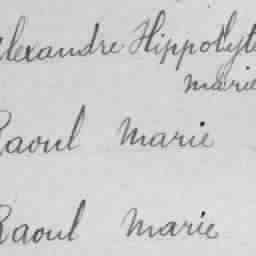 Alexandre Hippolyte
Marie
Raoul Marie
Raoul Marie